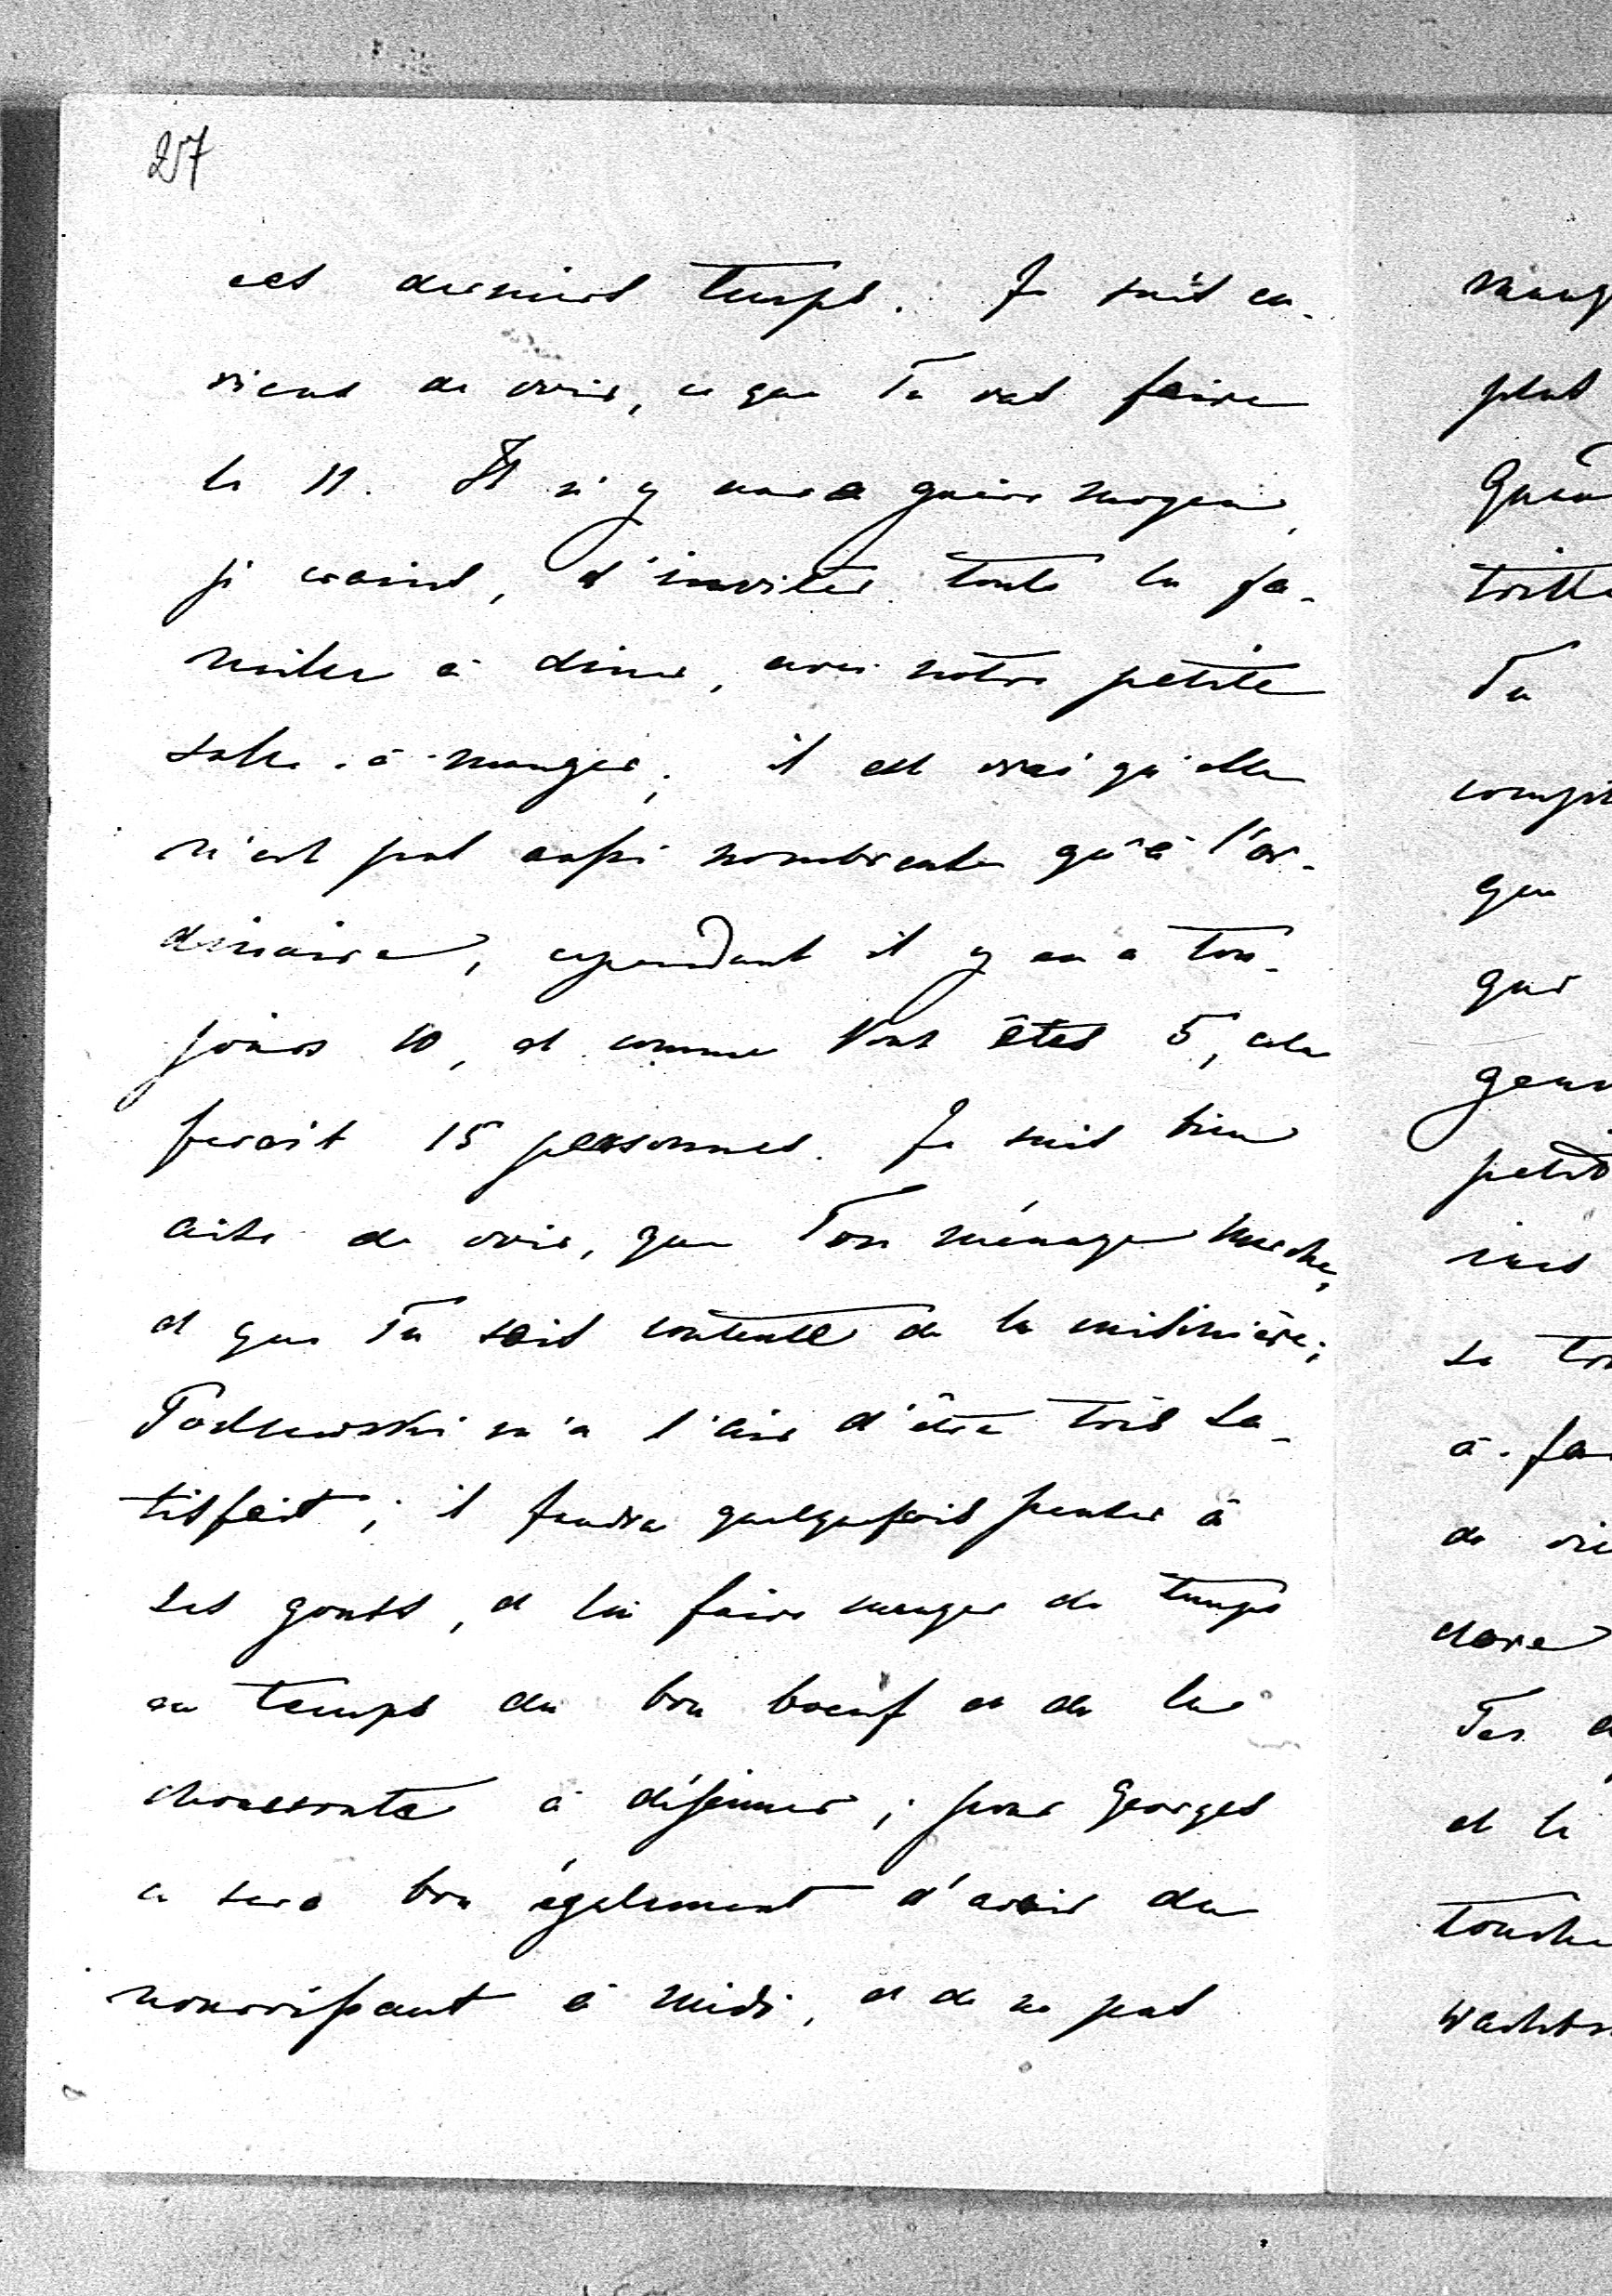 257
ces derniers temps. Je suis cu-
rieuse de voir, ce que Tu vas faire
le 11. Il n'y aura guère moyen,
je crains, d'inviter toute la fa-
mille à diner, avec notre petite
salle-à-manger; il est vrai qu'elle
n'est pas aussi nombreuse qu'à l'or-
dinaire, cependant il y en a tou-
jours 10, et comme Vous êtes 5, cela
ferait 15 personnes. Je suis bien
aise de voir, que Ton ménage marche,
et que Tu sois contente de la cuisinière;
m'a l'air d'être très sa-
tisfait; il faudra quelquefois penser à
ses gouts, et lui faire manger de temps
en temps du bon boeuf et de la
choucroute à déjeuner; pour Georges
ce sera bon également d'avoir du
nourrissant à midi, et de ne pas
mang
plus
Tu
que
qui
petit
se
à-fa
de
et le